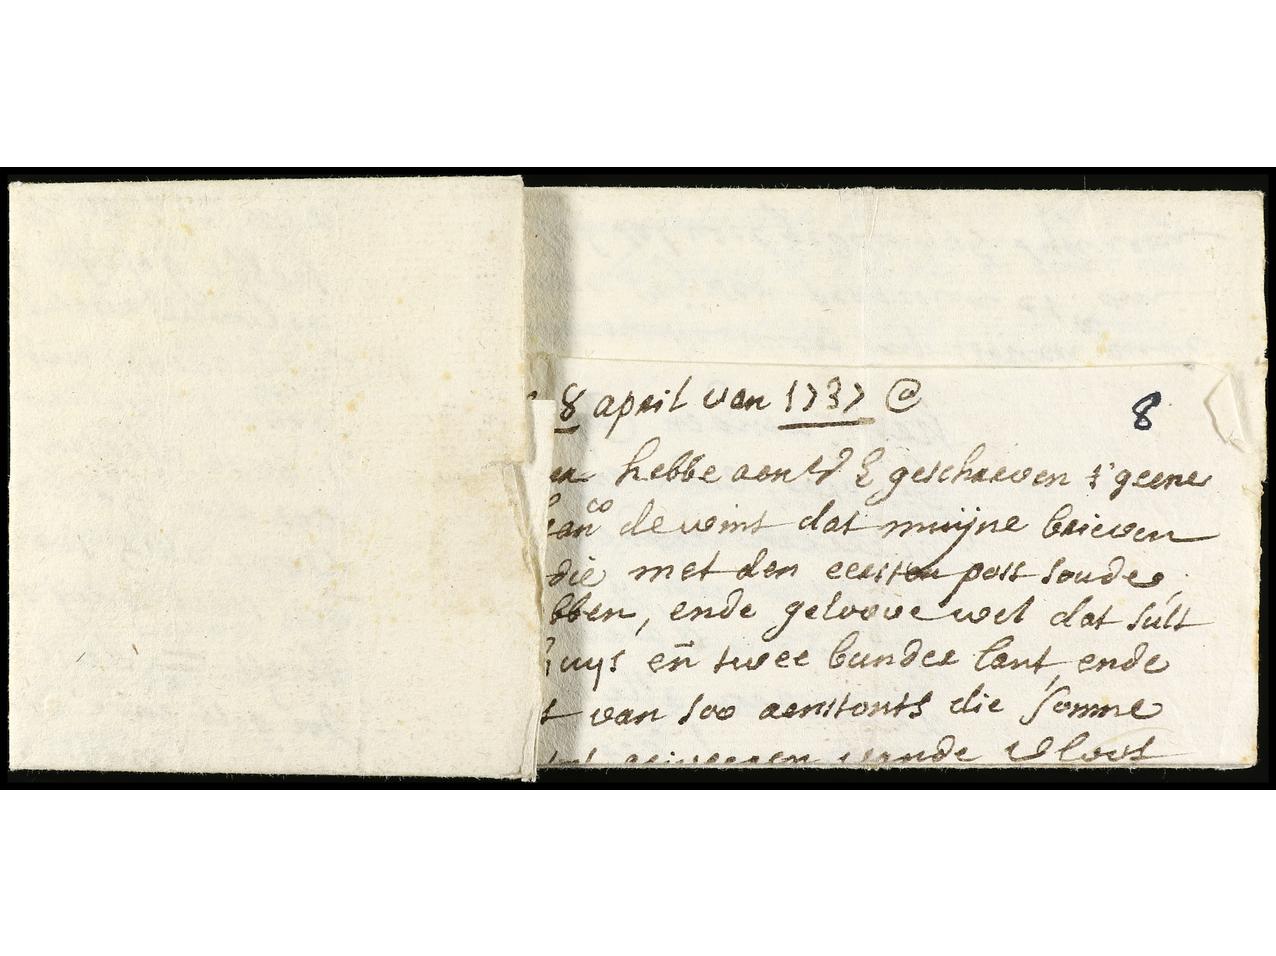 8 april van 1737 @
8
hebbe aen geschreven t'geene
de wint dat muijne brieven
die met den eersten post soude
bben, ende geloove wel dat sult
huys en twee bunder lant, ende
t van 500 aenstonts die somme
vande vloot